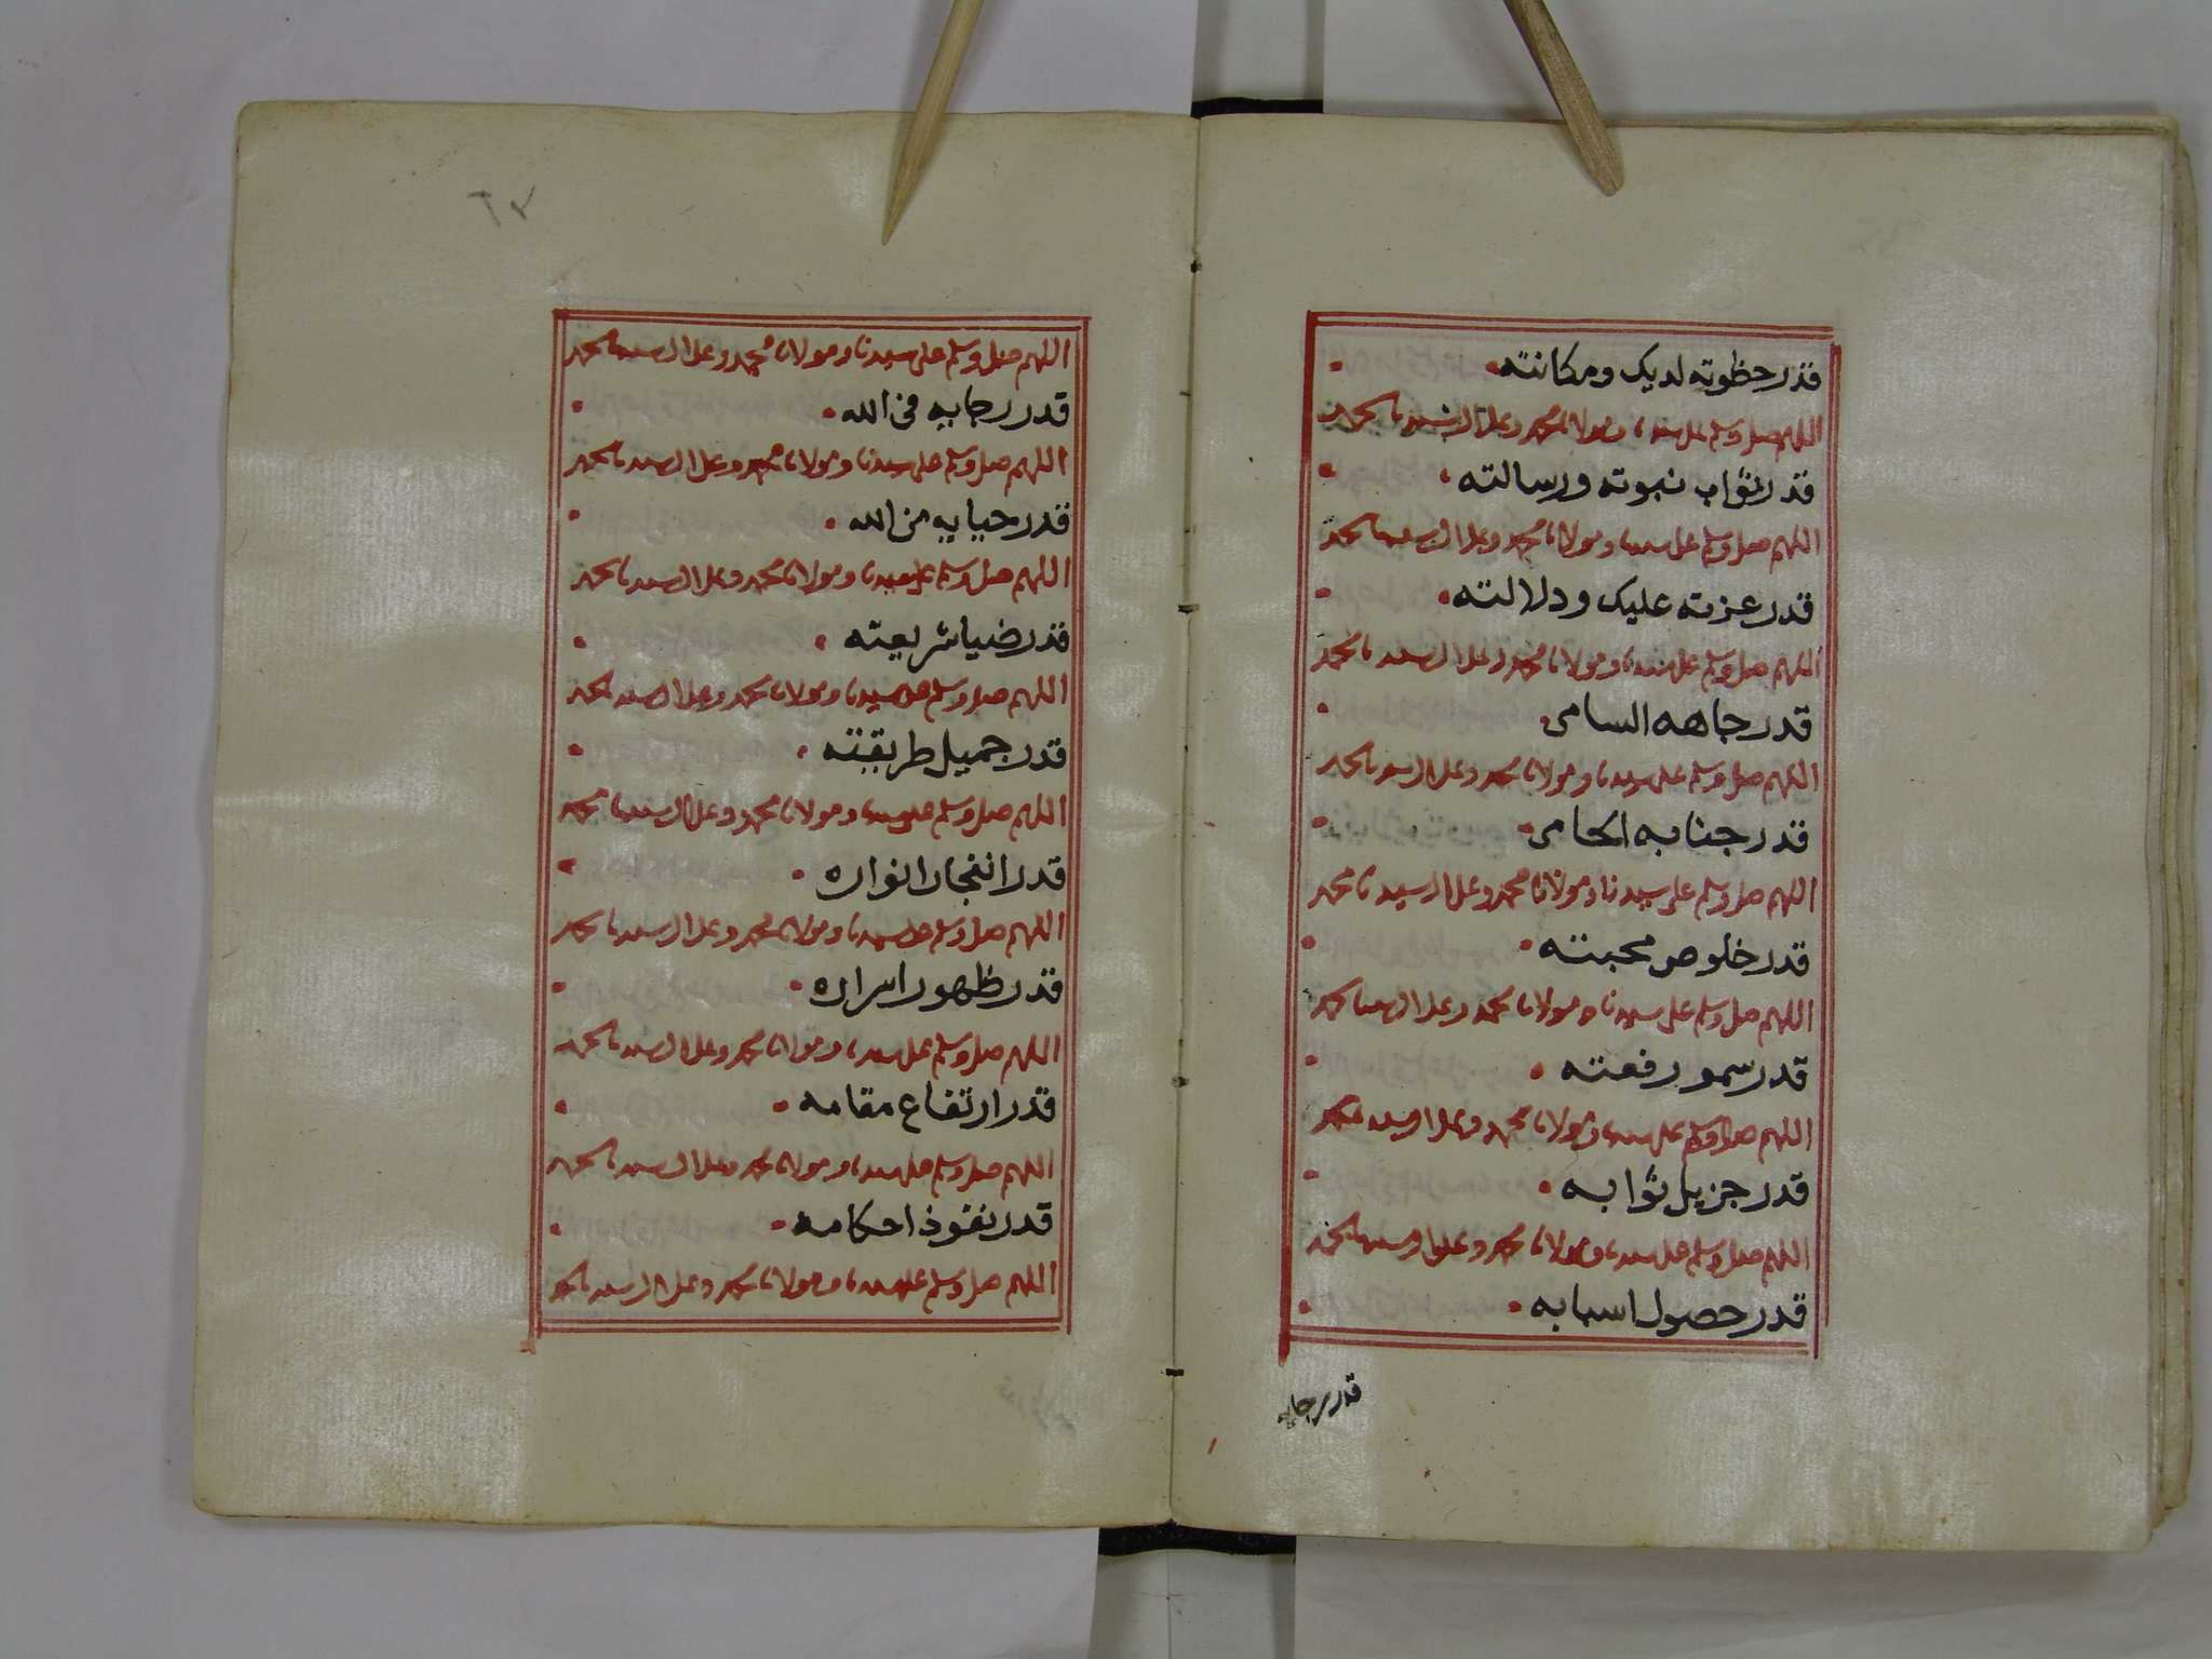 قدر حظوته لديك ومكانته
اللهم صل وسلم على سيدنا ومولانا محمد وعلى ال سيدنا محمد
قدر ثواب نبوته ورسالته
اللهم صل وسلم على سيدنا ومولانا محمد وعلى ال سيدنا محمد
قدر عزته عليك ودلالته
اللهم صل وسلم على سيدنا ومولانا محمد وعلى ال سيدنا محمد
قدر جاهه السامى
اللهم صل وسلم على سيدنا ومولانا محمد وعلى ال سيدنا محمد
قدر جنابه الحامى
اللهم صل وسلم على سيدنا ومولانا محمد وعلى ال سيدنا محمد
قدر خلوص محبته
اللهم صل وسلم على سيدنا ومولانا محمد وعلى ال سيدنا محمد
قدر سمو رفعته
اللهم صل وسلم على سيدنا ومولانا محمد وعلى ال سيدنا محمد
قدر جزيل ثوابه
اللهم صل وسلم على سيدنا ومولانا محمد وعلى ال سيدنا محمد
قدر حصول اسبابه
قدر رجايه
٦٧
اللهم صل وسلم على سيدنا ومولانا محمد وعلى ال سيدنا محمد
قدر رجايه فى الله
اللهم صل وسلم على سيدنا ومولانا محمد وعلى ال سيدنا محمد
قدر حيايه من الله
اللهم صل وسلم على سيدنا ومولانا محمد وعلى ال سيدنا محمد
قدر ضيا شريعته
اللهم صل وسلم على سيدنا ومولانا محمد وعلى ال سيدنا محمد
قدر جميل طريقته
اللهم صل وسلم على سيدنا ومولانا محمد وعلى ال سيدنا محمد
قدر انفجار انواره
اللهم صل وسلم على سيدنا ومولانا محمد وعلى ال سيدنا محمد
قدر ظهور اسراره
اللهم صل وسلم على سيدنا ومولانا محمد وعلى ال سيدنا محمد
قدر ارتفاع مقامه
اللهم صل وسلم على سيدنا ومولانا محمد وعلى ال سيدنا محمد
قدر نفوذ احكامه
اللهم صل وسلم على سيدنا ومولانا محمد وعلى ال سيدنا محمد